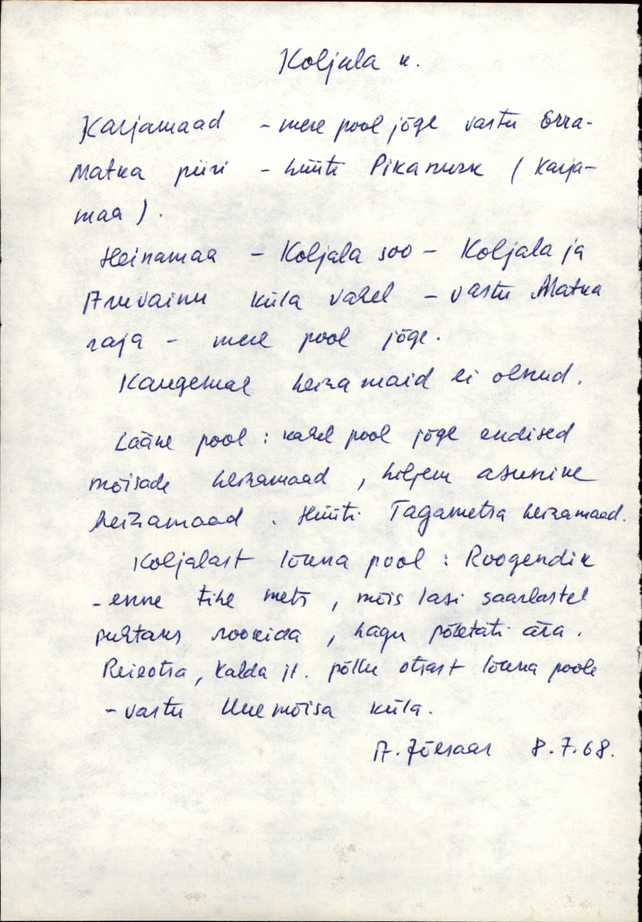 Koljala k.
Karjamaad - mere pool jõge vastu Orra-
Matka piiri - hüüti Pikanurk (karja-
maa).
Heinamaa - Koljala soo - Koljala ja
Aruvainu küla vahel - vastu Matka
raja - mere pool jõge.
Kaugemal heinamaid ei olnud.
Lääne pool: kahel pool jõge endised
mõisade heinamaad, hiljem asunike
heinamaad. Hüüti Tagametsa heinamaad.
Koljalast lõuna pool: Roogendik
- enne tihe mets, mõis lasi saarlastel
puhtaks rookida, hagu põletati ära.
Reinotsa, Kalda jt. põllu otsast lõuna poole
- vastu Uuemõisa küla.
A. Jõesaar 8.7.68.